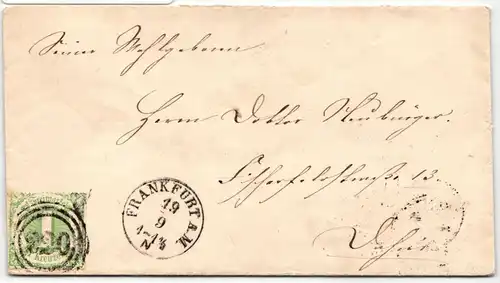 Seiner Wohlgeboren
Herrn Doktor Neubürger.
Fischerfeldstraße 13.
Dahier
FRANKFURT A.M.
19
9
1-1½
N
1
Kreuzer
300